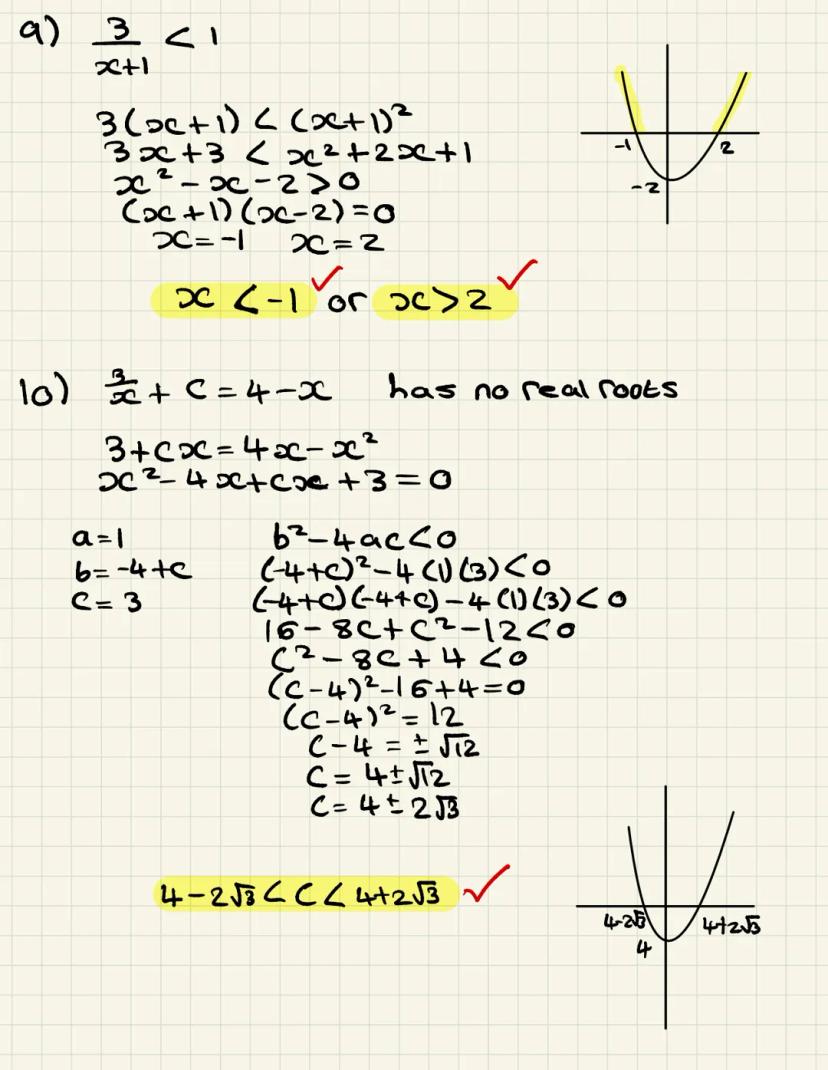 9) 3/(x+1) < 1
3(x+1) < (x+1)²
3x+3 < x²+2x+1
x²-x-2>0
(x+1)(x-2)=0
x=-1 x=2
x<-1 or x>2
-1 2
-2
10) 3/x + C = 4-x has no real roots
3+cx=4x-x²
x²-4x+cx+3=0
a=1
b=-4+c
c=3
b²-4ac<0
(-4+c)²-4(1)(3)<0
(-4+c)(-4+c)-4(1)(3)<0
16-8c+c²-12<0
c²-8c+4<0
(c-4)²-16+4=0
(c-4)²=12
c-4=±√12
c=4±√12
c=4±2√3
4-2√3<c<4+2√3
4-2√3 4+2√3
4